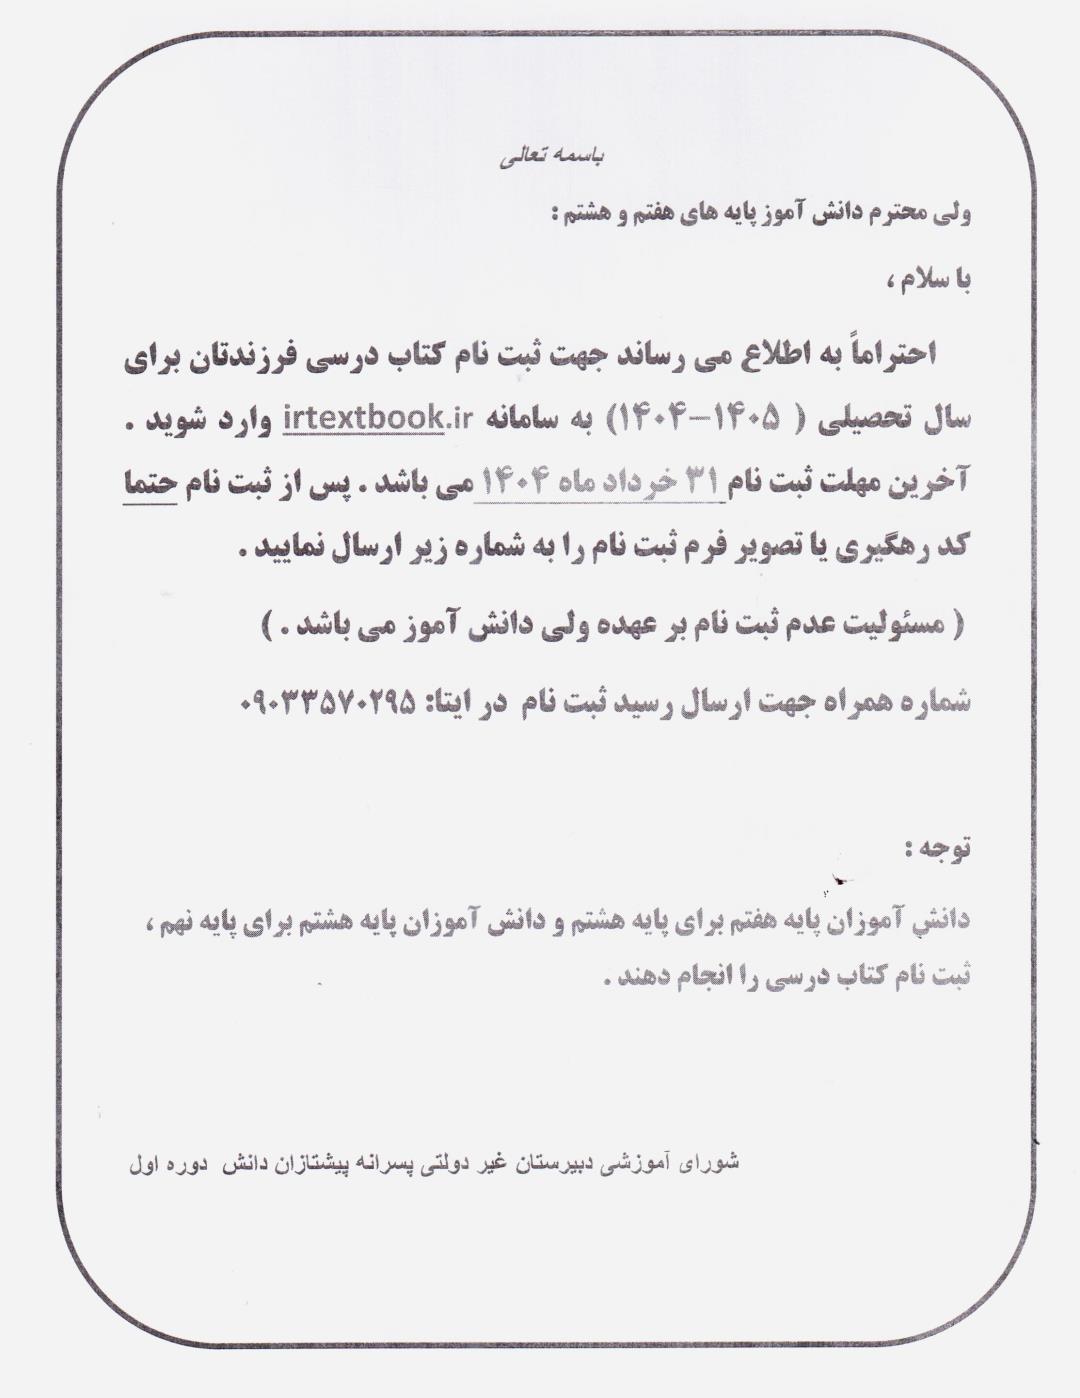 باسمه تعالی
ولی محترم دانش آموز پایه های هفتم و هشتم :
با سلام ،
احتراماً به اطلاع می رساند جهت ثبت نام کتاب درسی فرزندتان برای
سال تحصیلی ( ۱۴۰۵-۱۴۰۴) به سامانه irtextbook.ir وارد شوید .
آخرین مهلت ثبت نام ۳۱ خرداد ماه ۱۴۰۴ می باشد . پس از ثبت نام حتما
کد رهگیری یا تصویر فرم ثبت نام را به شماره زیر ارسال نمایید .
( مسئولیت عدم ثبت نام بر عهده ولی دانش آموز می باشد . )
شماره همراه جهت ارسال رسید ثبت نام در ایتا: ۰۹۰۳۳۵۷۰۲۹۵
توجه :
دانش آموزان پایه هفتم برای پایه هشتم و دانش آموزان پایه هشتم برای پایه نهم ،
ثبت نام کتاب درسی را انجام دهند .
شورای آموزشی دبیرستان غیر دولتی پسرانه پیشتازان دانش دوره اول